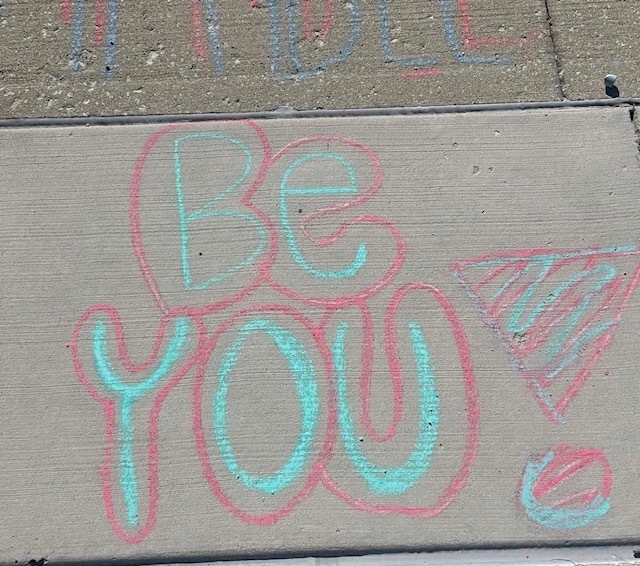 Be
YOU!